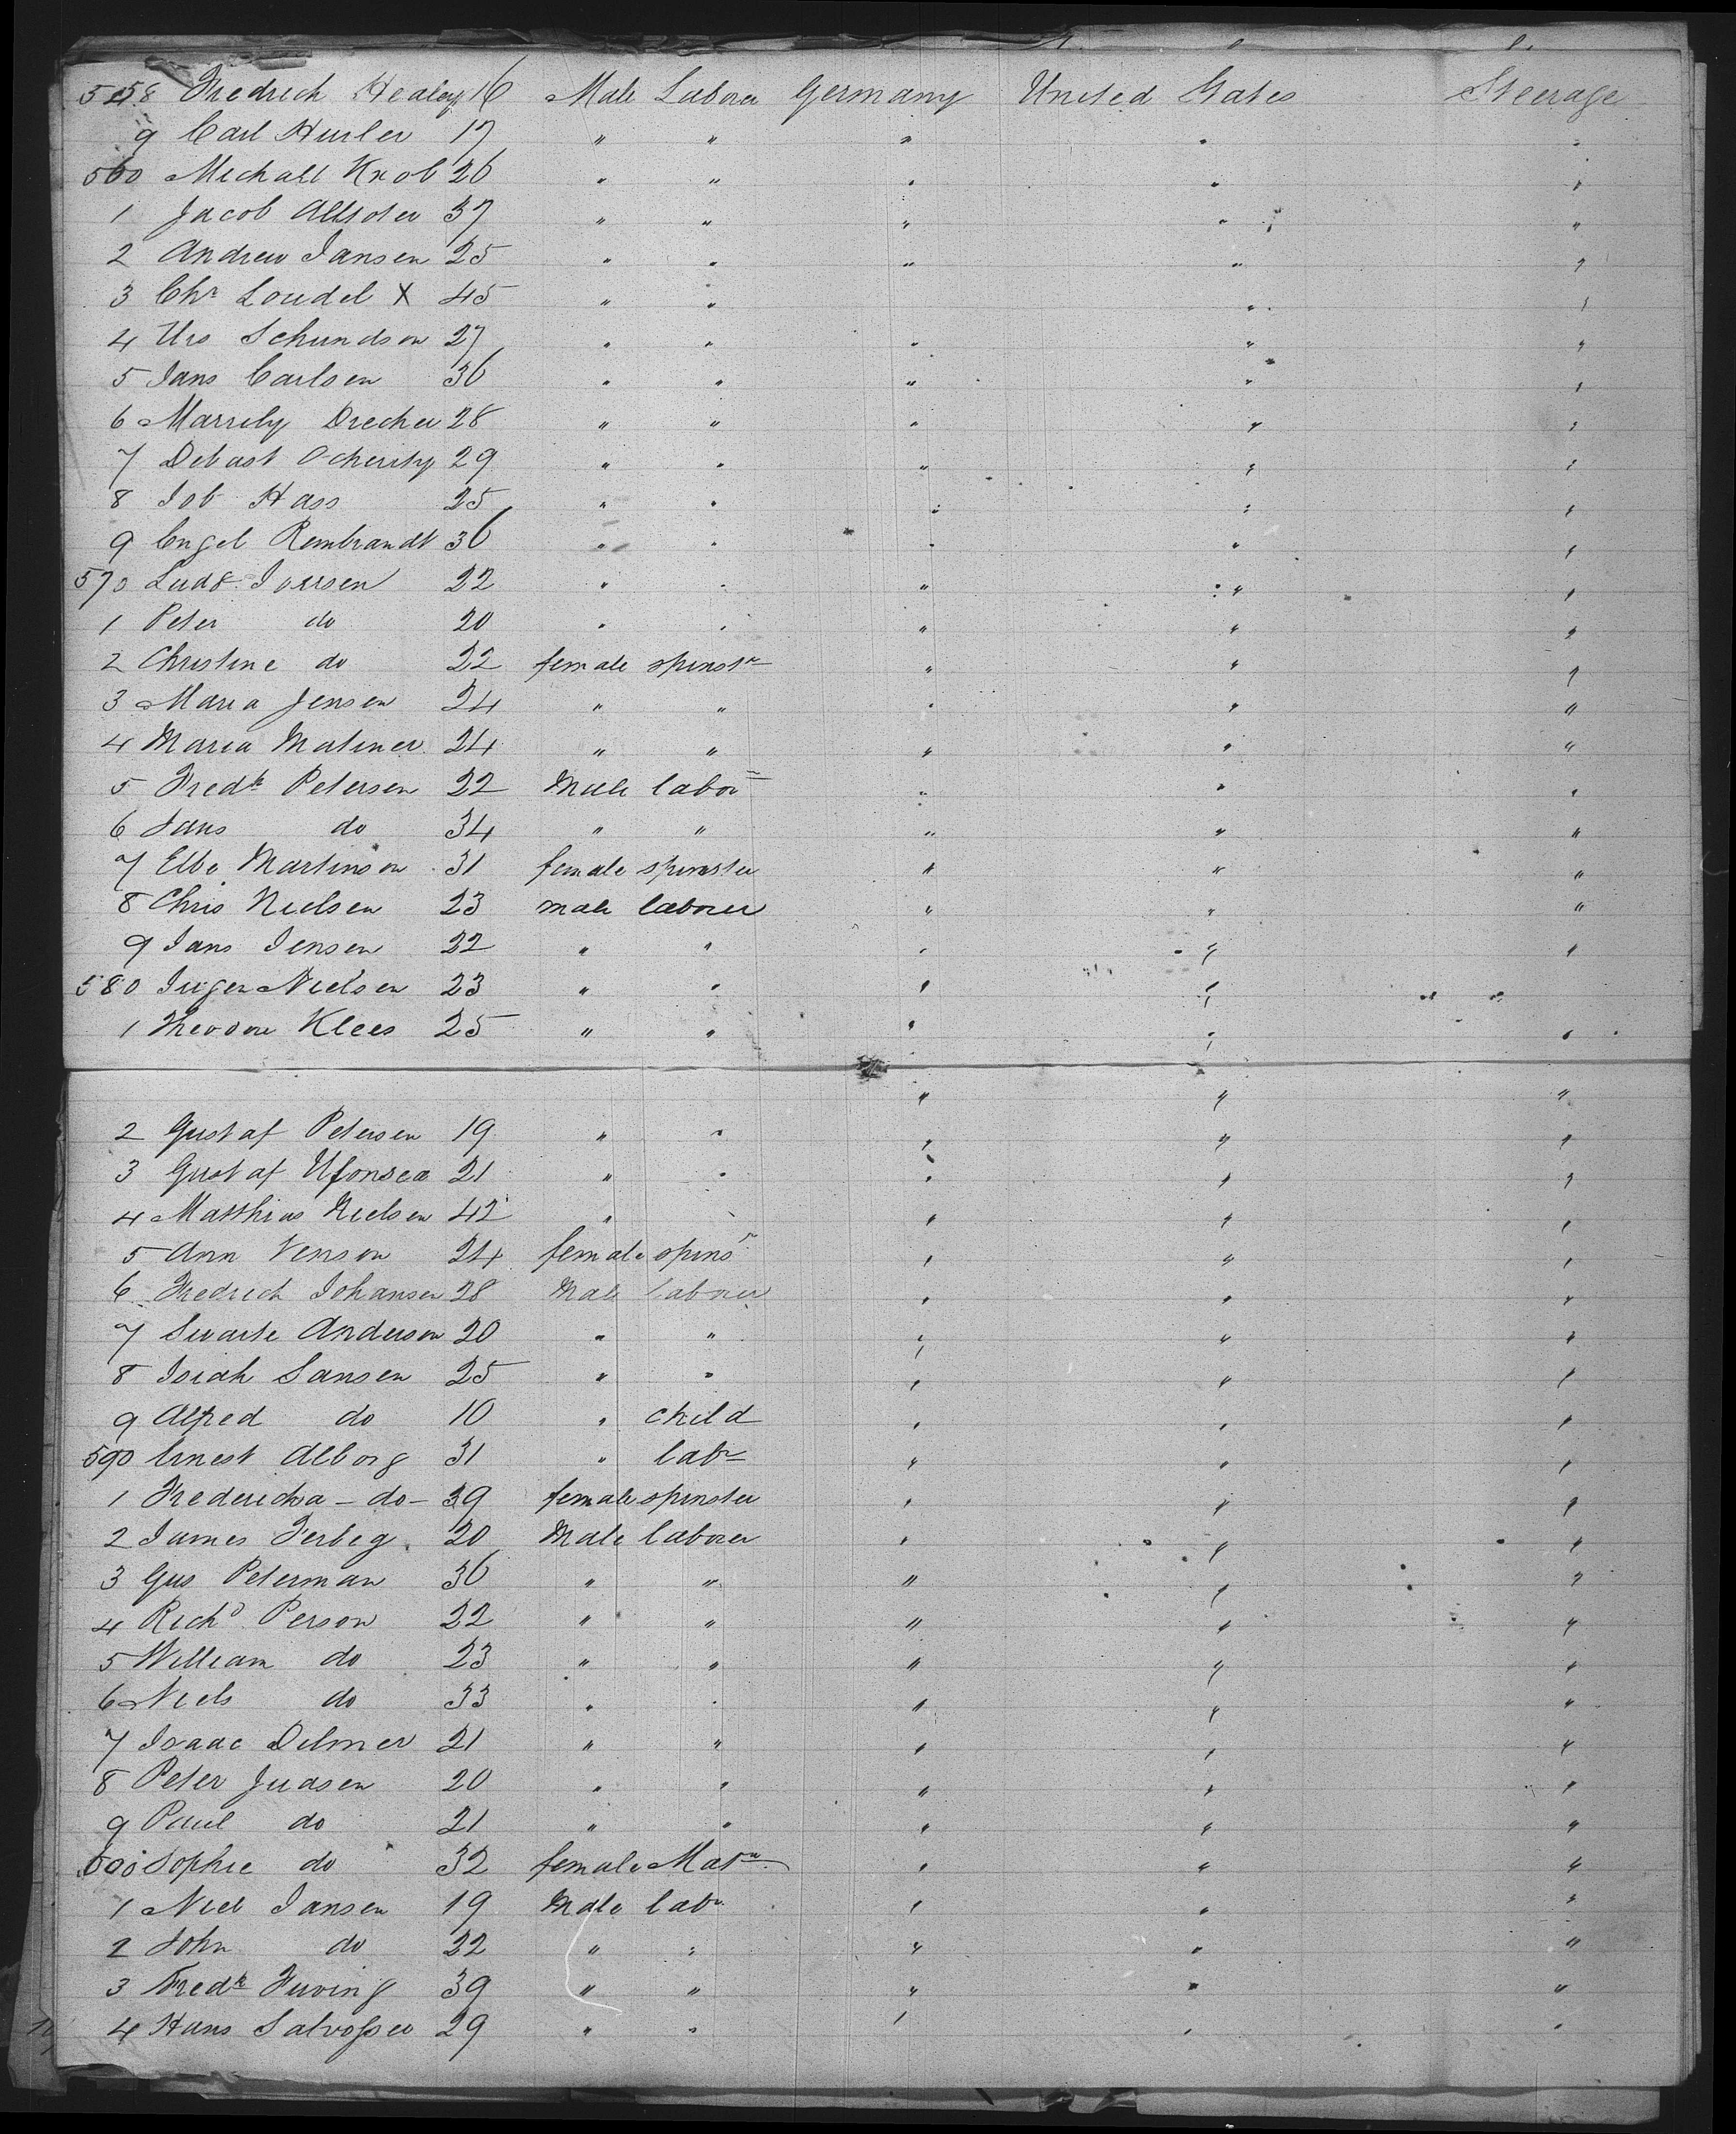 558 Fredrich Healey 16 Male Laborer Germany United States Steerage
9 Carl Hurler 17 " " " " "
560 Michall Knob 26 " " " " "
1 Jacob Altsoter 37 " " " " "
2 Andrew Jansen 25 " " " " "
3 Chr Loudel X 45 " " " "
4 Urs Schundson 27 " " " " "
5 Jans Carlsen 36 " " " " "
6 Marrily Drecher 28 " " " " "
7 Debast Ocherity 29 " " " " "
8 Job Hass 25 " " " " "
9 Engel Rembrandt 36 " " " " "
570 Lud& Jorrsen 22 " " " " "
1 Peter do 20 " " " " "
2 Christine do 22 female spinstr " " "
3 Maria Jensen 24 " " " " "
4 Maria Matiner 24 " " " " "
5 Fredk Petersen 22 Male labor " " "
6 Jans do 34 " " " " "
7 Elbe Martinson 31 female spinster " " "
8 Chris Nielsen 23 male laborer " " "
9 Jans Jensen 22 " " " " "
580 Juger Nielsen 23 " " " "
1 Theodore Klees 25 " " " " "
" " "
2 Gustaf Petersen 19 " " " " "
3 Gustaf Ufonsca 21 " " " " "
4 Matthias Nielsen 42 " " " " "
5 Ann Venson 24 female spinsr " " "
6 Fredrich Johansen 28 Male laborer " " "
7 Swarte Anderson 20 " " " " "
8 Isiah Sansen 25 " " " " "
9 Alfred do 10 " child " " "
590 Ernest Alborg 31 " labr " " "
1 Fredericka - do - 39 female spinster " " "
2 James Ferbeg 20 Male laborer " " "
3 Gus Peterman 36 " " " " "
4 Richd Person 22 " " " " "
5 William do 23 " " " " "
6 Niels do 33 " " " " "
7 Isaac Delmer 21 " " " " "
8 Peter Judsen 20 " " " " "
9 Paul do 21 " " " " "
600 Sophie do 32 female Matn " " "
1 Niel Jansen 19 Male labr " " "
2 John do 22 " " " " "
3 Fredk Fuving 39 " " " " "
4 Hans Salvosser 29 " " " " "